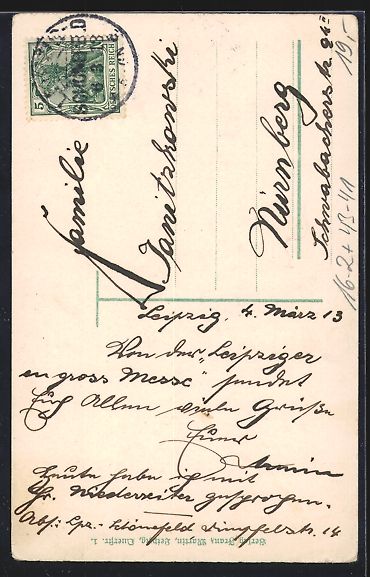 Familie
Janitzkowski
Nürnberg
Schwabacherstr. 94 II
Leipzig, 4. März 13
Von der „Leipziger
en gross Messe“ sendet
Euch Allen viele Grüße
Euer
Heute habe ich mit
Hr. Niederreiter gesprochen.
Abs: Lpz.-Schönefeld Dimpfelstr. 14
Verlag Franz Martin, Leipzig, Querstr. 1.
5
DEUTSCHES REICH
19,5
16-2 + 43-41